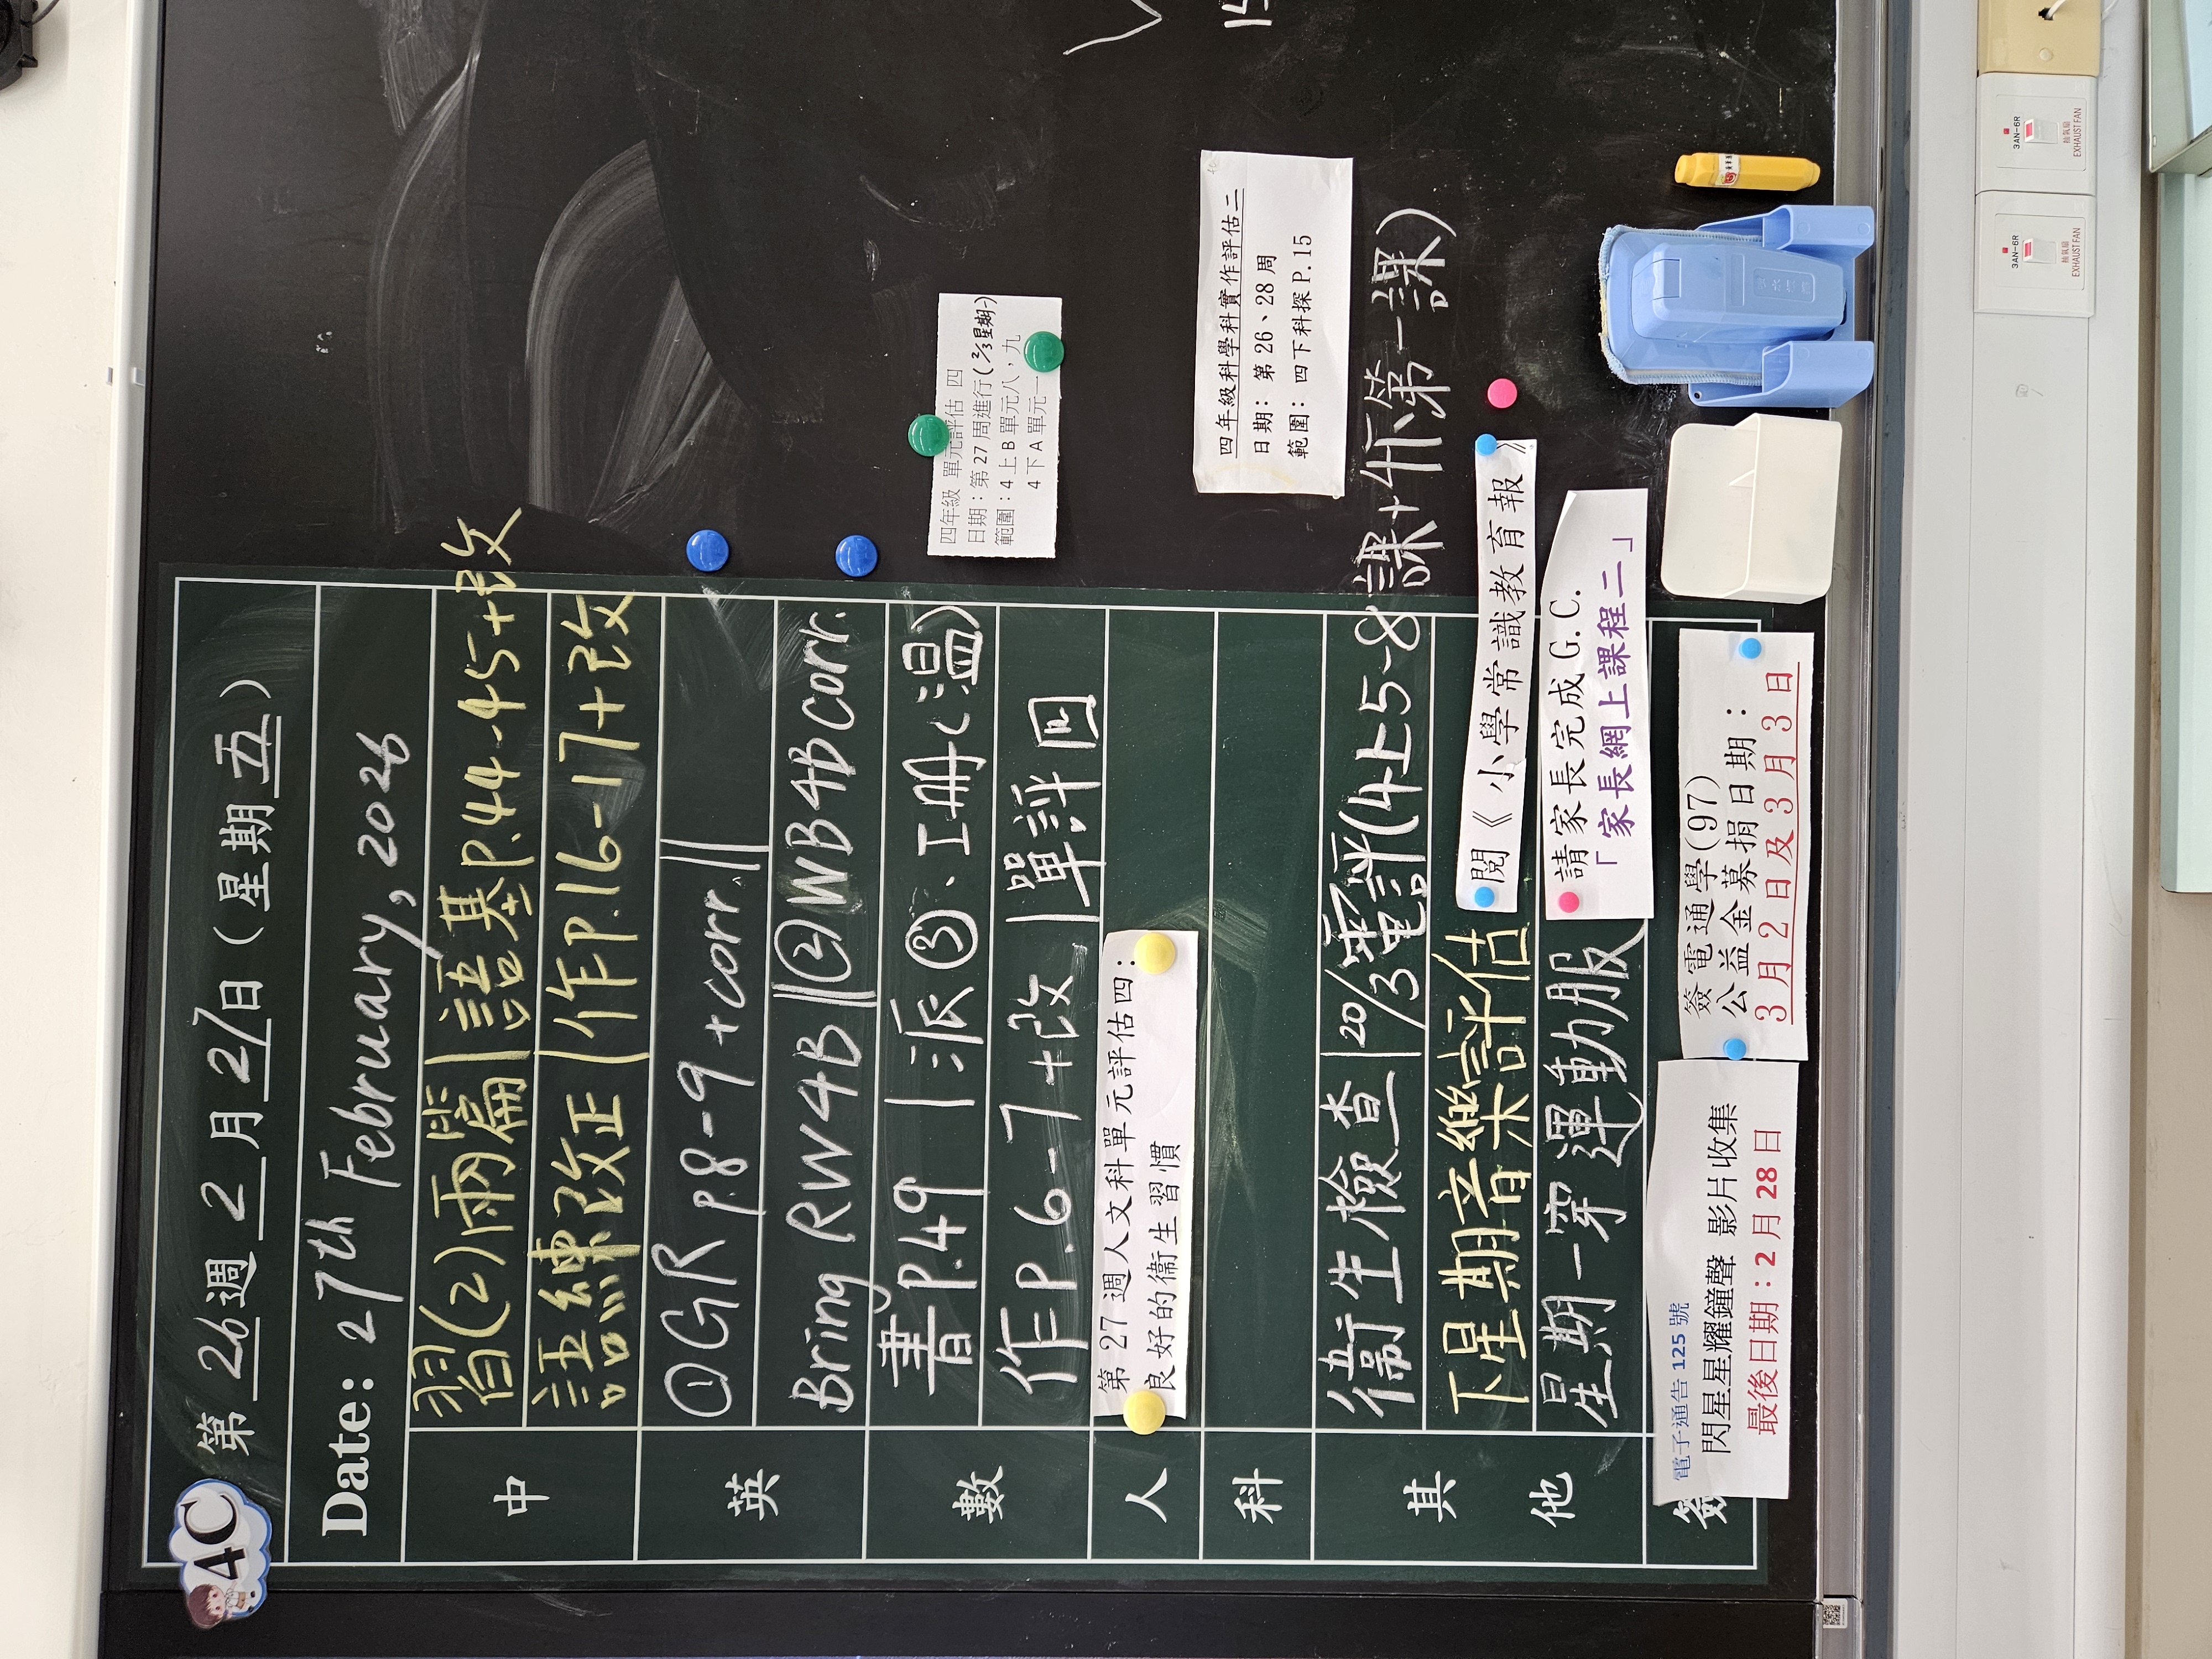 4C
第 26 週 2 月 27 日 (星期 五 )
Date: 27th February, 2026
中
習(2)兩篇|語基P.44-45+改
語練改正|作P.16-17+改
英
①GR p.8-9 +corr.||
Bring RW4B||②WB4Bcorr.
數
書P.49 |派③、工冊(溫)
作P.6-7+改 |單評四
人
第 27 週人文科單元評估四：
良好的衞生習慣
科
其他
衞生檢查|20/3電評(4上5-8課+4下第一課)
下星期音樂評估
星期一穿運動服
閱《小學常識教育報》
請家長完成 G.C.
「家長網上課程二」
簽
電子通告 125 號
閃星星耀鐘聲 影片收集
最後日期：2 月 28 日
簽電通學(97)
公益金募捐日期：
3 月 2 日及 3 月 3 日
四年級 單元評估 四
日期：第 27 周進行(2/3星期一)
範圍：4 上 B 單元八，九
4 下 A 單元一
四年級科學科實作評估二
日期：第 26、28 周
範圍：四下科探 P.15
3AN-6R
抽氣扇
EXHAUST FAN
3AN-6R
抽氣扇
EXHAUST FAN